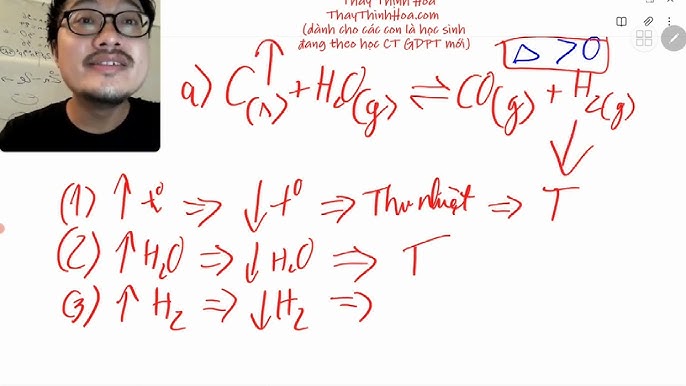 Thầy Thịnh Hóa
ThayThinhHoa.com
(dành cho các con là học sinh
đang theo học CT GDPT mới)
Δ > 0
a) C(s) + H2O(g) ⇌ CO(g) + H2(g)
(1) ↑ t° ⇒ ↓ t° ⇒ Thu nhiệt ⇒ T
(2) ↑ H2O ⇒ ↓ H2O ⇒ T
(3) ↑ H2 ⇒ ↓ H2 ⇒